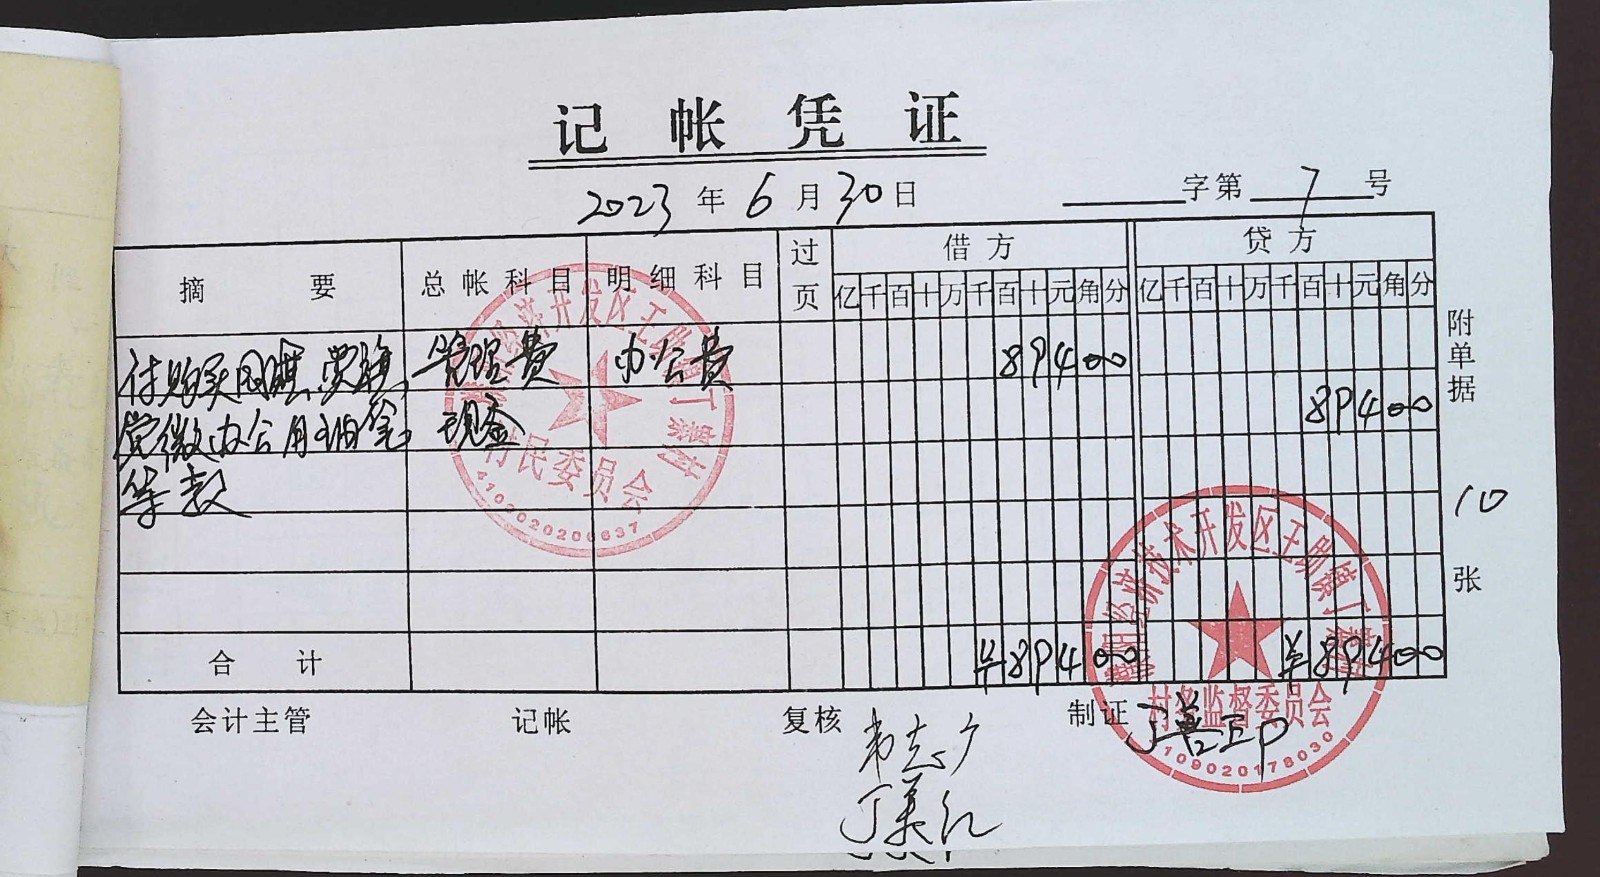 记帐凭证
2023年6月30日
字第7号
摘要 总帐科目 明细科目 过页 借方 贷方
亿千百十万千百十元角分 亿千百十万千百十元角分
付购买国旗、党旗、 管理费 办公费 89400
党徽、办公用 现金 89400
等款
合计 ¥89400 ¥89400
附单据 10 张
会计主管 记帐 复核 制证
丁美红
经济技术开发区王助镇丁寨村
村民委员会
濮阳经济技术开发区王助镇丁寨村
村务监督委员会
4109020178030